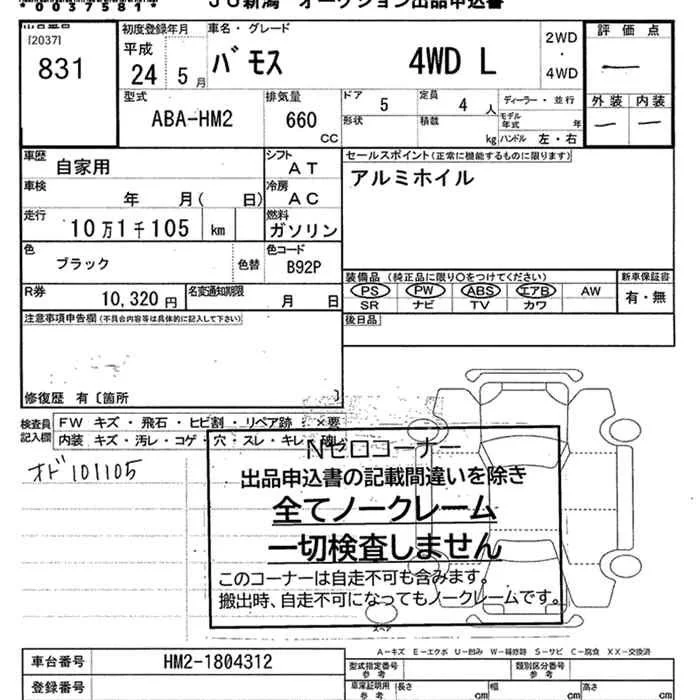 *0037581*
JU新潟 オークション出品申込書
出品番号
[2037]
831
初度登録年月
平成
24 5月
車名・グレード
バモス 4WD L
2WD
・
4WD
評価点
―
外装 内装
― ―
型式
ABA-HM2
排気量
660
CC
ドア 5
定員 4人
形状
積載 kg
ディーラー・並行
モデル年式 年
ハンドル 左・右
車歴
自家用
シフト
AT
セールスポイント(正常に機能するものに限ります)
アルミホイル
車検
年 月( 日)
冷房
AC
走行
10万1千105 km
燃料
ガソリン
色
ブラック
色替
色コード
B92P
装備品(純正品に限り○をつけてください)
新車保証書
PS PW ABS エアB AW
SR ナビ TV カワ
有・無
R券
10,320円
名変通知期限
月 日
後日品
注意事項申告欄(不具合内容等は具体的に記入して下さい)
修復歴 有〔箇所 〕
検査員記入欄
FW キズ・飛石・ヒビ割・リペア跡・×要
内装 キズ・汚レ・コゲ・穴・スレ・キレ・破レ
オド101105
Nゼロコーナー
出品申込書の記載間違いを除き
全てノークレーム
一切検査しません
このコーナーは自走不可も含みます。
搬出時、自走不可になってもノークレームです。
スペア
A-キズ E-エクボ U-凹み W-補修跡 S-サビ C-腐食 XX-交換済
車台番号
HM2-1804312
型式指定番号
参考
類別区分番号
参考
登録番号
車庫証明用
参考
長さ cm
幅 cm
高さ cm